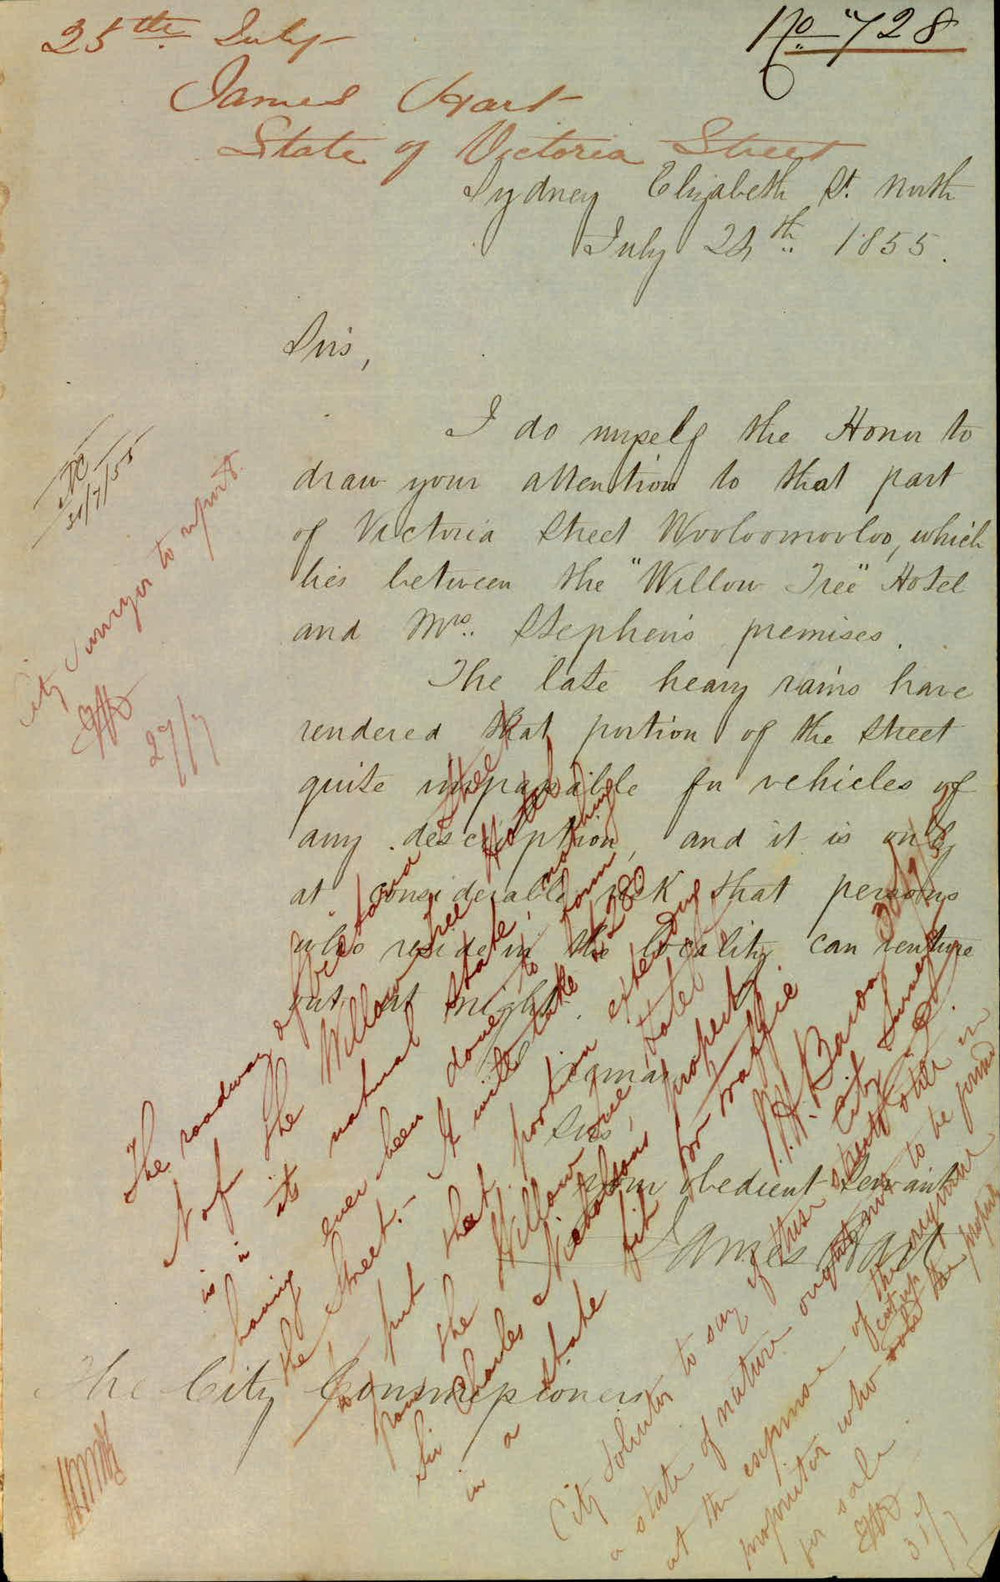 25th July
No. 728
James Hart
State of Victoria Street
Sydney Elizabeth St. North
July 24th 1855.
Sirs,
I do myself the Honor to
draw your attention to that part
of Victoria Street Wooloomooloo, which
lies between the "Willow Tree" Hotel
and Mrs. Stephen's premises.
The late heavy rains have
rendered that portion of the street
quite impassable for vehicles of
any description, and it is only
at considerable risk that persons
who reside in the locality can venture
out at night.
I remain
Sirs,
your obedient Servant
James Hart
The City Commissioners
30/7/55
City Surveyor to report
27/7
The roadway of Victoria Street
N of the Willow Tree Hotel
is in its natural state, nothing
having ever been done to form
the Street. - It will take £280
to put that portion extending
from the Willow Tree Hotel to
Sir Charles Nicholsons property
in a state fit for traffic
City Surveyor
City Solicitor to say if this street other in
a state of nature ought not to be formed
at the expense of the original
proprietor who cut up the property
for sale
31/7